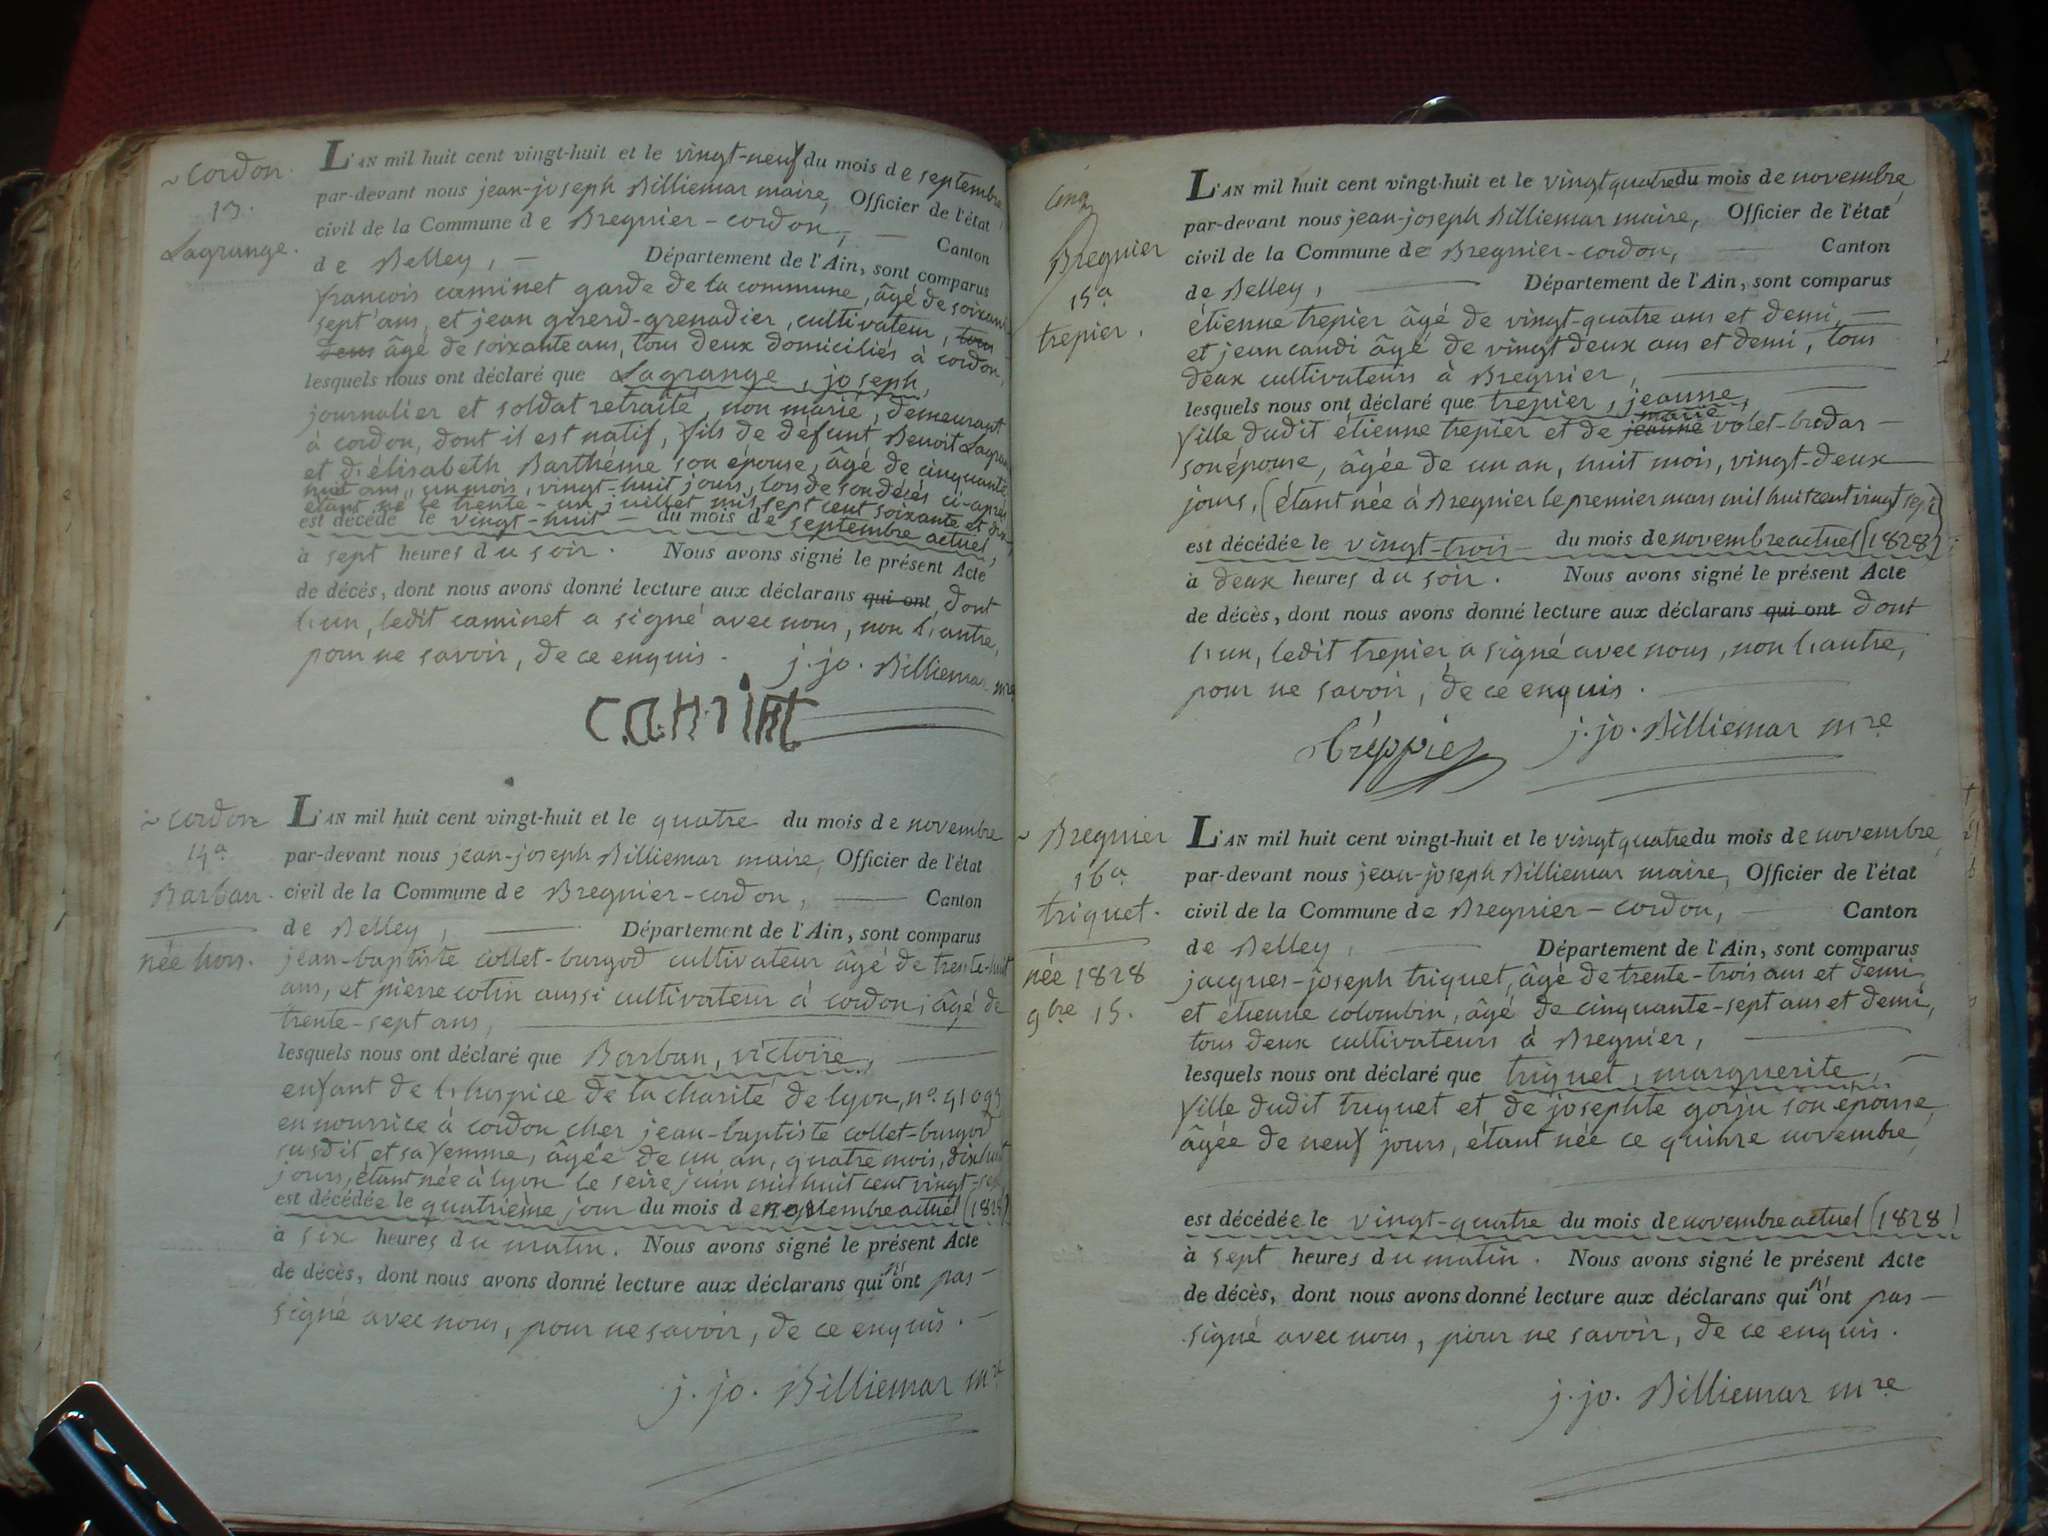 ~ Cordon.
13.
Lagrange.
L'AN mil huit cent vingt-huit et le vingt-neuf du mois de septembre,
par-devant nous jean-joseph Billiemar maire, Officier de l'état
civil de la Commune de Bregnier-cordon, — Canton
de Belley, — Département de l'Ain, sont comparus
françois caminet garde de la commune, âgé de soixante
sept ans, et jean girerd-grenadier, cultivateur, tous
deux âgé de soixante ans, tous deux domiciliés à cordon,
lesquels nous ont déclaré que Lagrange, joseph,
journalier et soldat retraité, non marié, demeurant
à cordon, dont il est natif, fils de défunt Benoit Lagrange
et d'élisabeth Barthéme son épouse, âgé de cinquante
huit ans, un mois, vingt-huit jours, lors de son décès ci-après
étant né le trente-un juillet mil sept cent soixante et dix,
est décédé le vingt-huit — du mois de septembre actuel,
à sept heures du soir. Nous avons signé le présent Acte
de décès, dont nous avons donné lecture aux déclarans qui ont, dont
l'un, ledit caminet a signé avec nous, non l'autre,
pour ne savoir, de ce enquis. j. jo. Billiemar mre
caminet
~ Cordon
14a
Barban.
née hors.
L'AN mil huit cent vingt-huit et le quatre du mois de novembre
par-devant nous jean-joseph Billiemar maire, Officier de l'état
civil de la Commune de Bregnier-cordon, — Canton
de Belley, — Département de l'Ain, sont comparus
jean-baptiste collet-burgod cultivateur âgé de trente-huit
ans, et pierre cotin aussi cultivateur à cordon, âgé de
trente-sept ans,
lesquels nous ont déclaré que Barban, victoire, —
enfant de l'hospice de la charité de lyon, no. 91093
en nourrice à cordon cher jean-baptiste collet-burgod
susdit, et sa femme, âgée de un an, quatre mois, dix huit
jours, étant née à lyon le seize juin mil huit cent vingt-sept
est décédée le quatrième jour du mois de novembre actuel (1828)
à six heures du matin. Nous avons signé le présent Acte
de décès, dont nous avons donné lecture aux déclarans qui n'ont pas —
signé avec nous, pour ne savoir, de ce enquis. —
j. jo. Billiemar mre
cinq
Bregnier
15a
trepier.
L'AN mil huit cent vingt-huit et le vingt quatre du mois de novembre,
par-devant nous jean-joseph Billiemar maire, Officier de l'état
civil de la Commune de Bregnier-cordon, — Canton
de Belley, — Département de l'Ain, sont comparus
étienne trepier âgé de vingt-quatre ans et demi, —
et jean candi âgé de vingt deux ans et demi, tous
deux cultivateurs à Bregnier, —
lesquels nous ont déclaré que trepier, jeanne,
marie
fille dudit étienne trepier et de jeanne volet-brodar —
son épouse, âgée de un an, huit mois, vingt-deux
jours, (étant née à Bregnier le premier mars mil huit cent vingt sept)
est décédée le vingt-trois — du mois de novembre actuel (1828),
à deux heures du soir. Nous avons signé le présent Acte
de décès, dont nous avons donné lecture aux déclarans qui ont dont
l'un, ledit trepier a signé avec nous, non l'autre,
pour ne savoir, de ce enquis. —
treppier j. jo. Billiemar mre
~ Bregnier
16a
triquet.
née 1828
9bre 15.
L'AN mil huit cent vingt-huit et le vingt quatre du mois de novembre,
par-devant nous jean-joseph Billiemar maire, Officier de l'état
civil de la Commune de Bregnier-cordon, — Canton
de Belley, — Département de l'Ain, sont comparus
jacques-joseph triquet, âgé de trente-trois ans et demi
et étienne colombin, âgé de cinquante-sept ans et demi,
tous deux cultivateurs à Bregnier, —
lesquels nous ont déclaré que triquet, marguerite, —
fille dudit triquet et de josephte gorju son épouse,
âgée de neuf jours, étant née ce quinze novembre,
est décédée le vingt-quatre du mois de novembre actuel (1828)
à sept heures du matin. Nous avons signé le présent Acte
de décès, dont nous avons donné lecture aux déclarans qui n'ont pas —
signé avec nous, pour ne savoir, de ce enquis.
j. jo. Billiemar mre